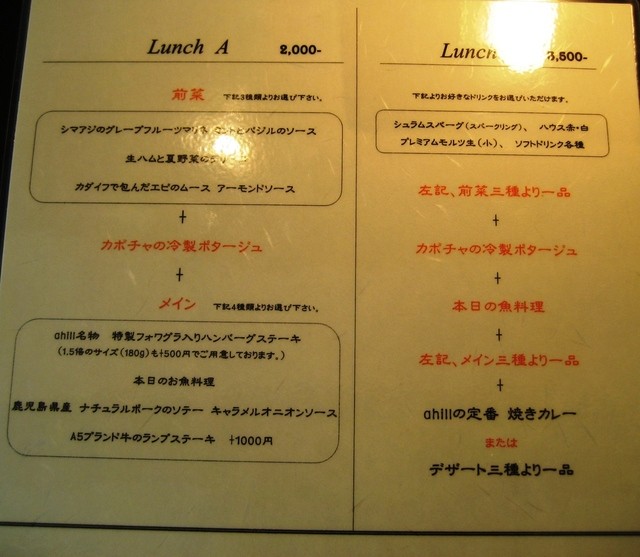 Lunch A 2,000-
前菜 下記3種類よりお選び下さい。
シマアジのグレープフルーツマリネ ミントとバジルのソース
生ハムと夏野菜の
カダイフで包んだエビのムース アーモンドソース
+
カボチャの冷製ポタージュ
+
メイン 下記4種類よりお選び下さい。
ahill名物 特製フォワグラ入りハンバーグステーキ
(1.5倍のサイズ(180g)も+500円でご用意しております。)
本日のお魚料理
鹿児島県産 ナチュラルポークのソテー キャラメルオニオンソース
A5ブランド牛のランプステーキ +1000円
Lunch 3,500-
下記よりお好きなドリンクをお選びいただけます。
シュラムスバーグ(スパークリング)、 ハウス赤・白
プレミアムモルツ生(小)、 ソフトドリンク各種
左記、前菜三種より一品
+
カボチャの冷製ポタージュ
+
本日の魚料理
+
左記、メイン三種より一品
+
ahillの定番 焼きカレー
または
デザート三種より一品